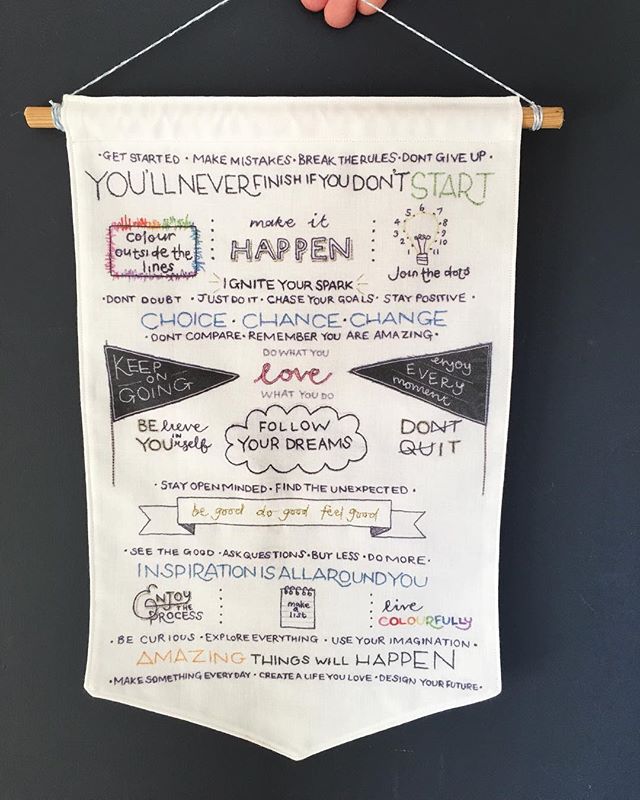 ·GET STARTED · MAKE MISTAKES · BREAK THE RULES · DONT GIVE UP ·
YOU'LL NEVER FINISH IF YOU DON'T START
colour
outside the
lines
make it
HAPPEN
1 2 3 4 5 6 7 8 9 10 11
Join the dots
IGNITE YOUR SPARK
·DONT DOUBT · JUST DO IT · CHASE YOUR GOALS · STAY POSITIVE ·
CHOICE · CHANCE · CHANGE
·DONT COMPARE · REMEMBER YOU ARE AMAZING·
KEEP
ON
GOING
DO WHAT YOU
love
WHAT YOU DO
enjoy
EVERY
moment
BElieve
in
YOUrself
FOLLOW
YOUR DREAMS
DONT
QUIT
· STAY OPEN MINDED · FIND THE UNEXPECTED ·
be good do good feel good
· SEE THE GOOD · ASK QUESTIONS · BUY LESS · DO MORE ·
INSPIRATION IS ALL AROUND YOU
ENJOY
THE
PROCESS
make
a
list
live
COLOURFULLY
· BE CURIOUS · EXPLORE EVERYTHING · USE YOUR IMAGINATION ·
AMAZING THINGS WILL HAPPEN
·MAKE SOMETHING EVERYDAY · CREATE A LIFE YOU LOVE · DESIGN YOUR FUTURE·